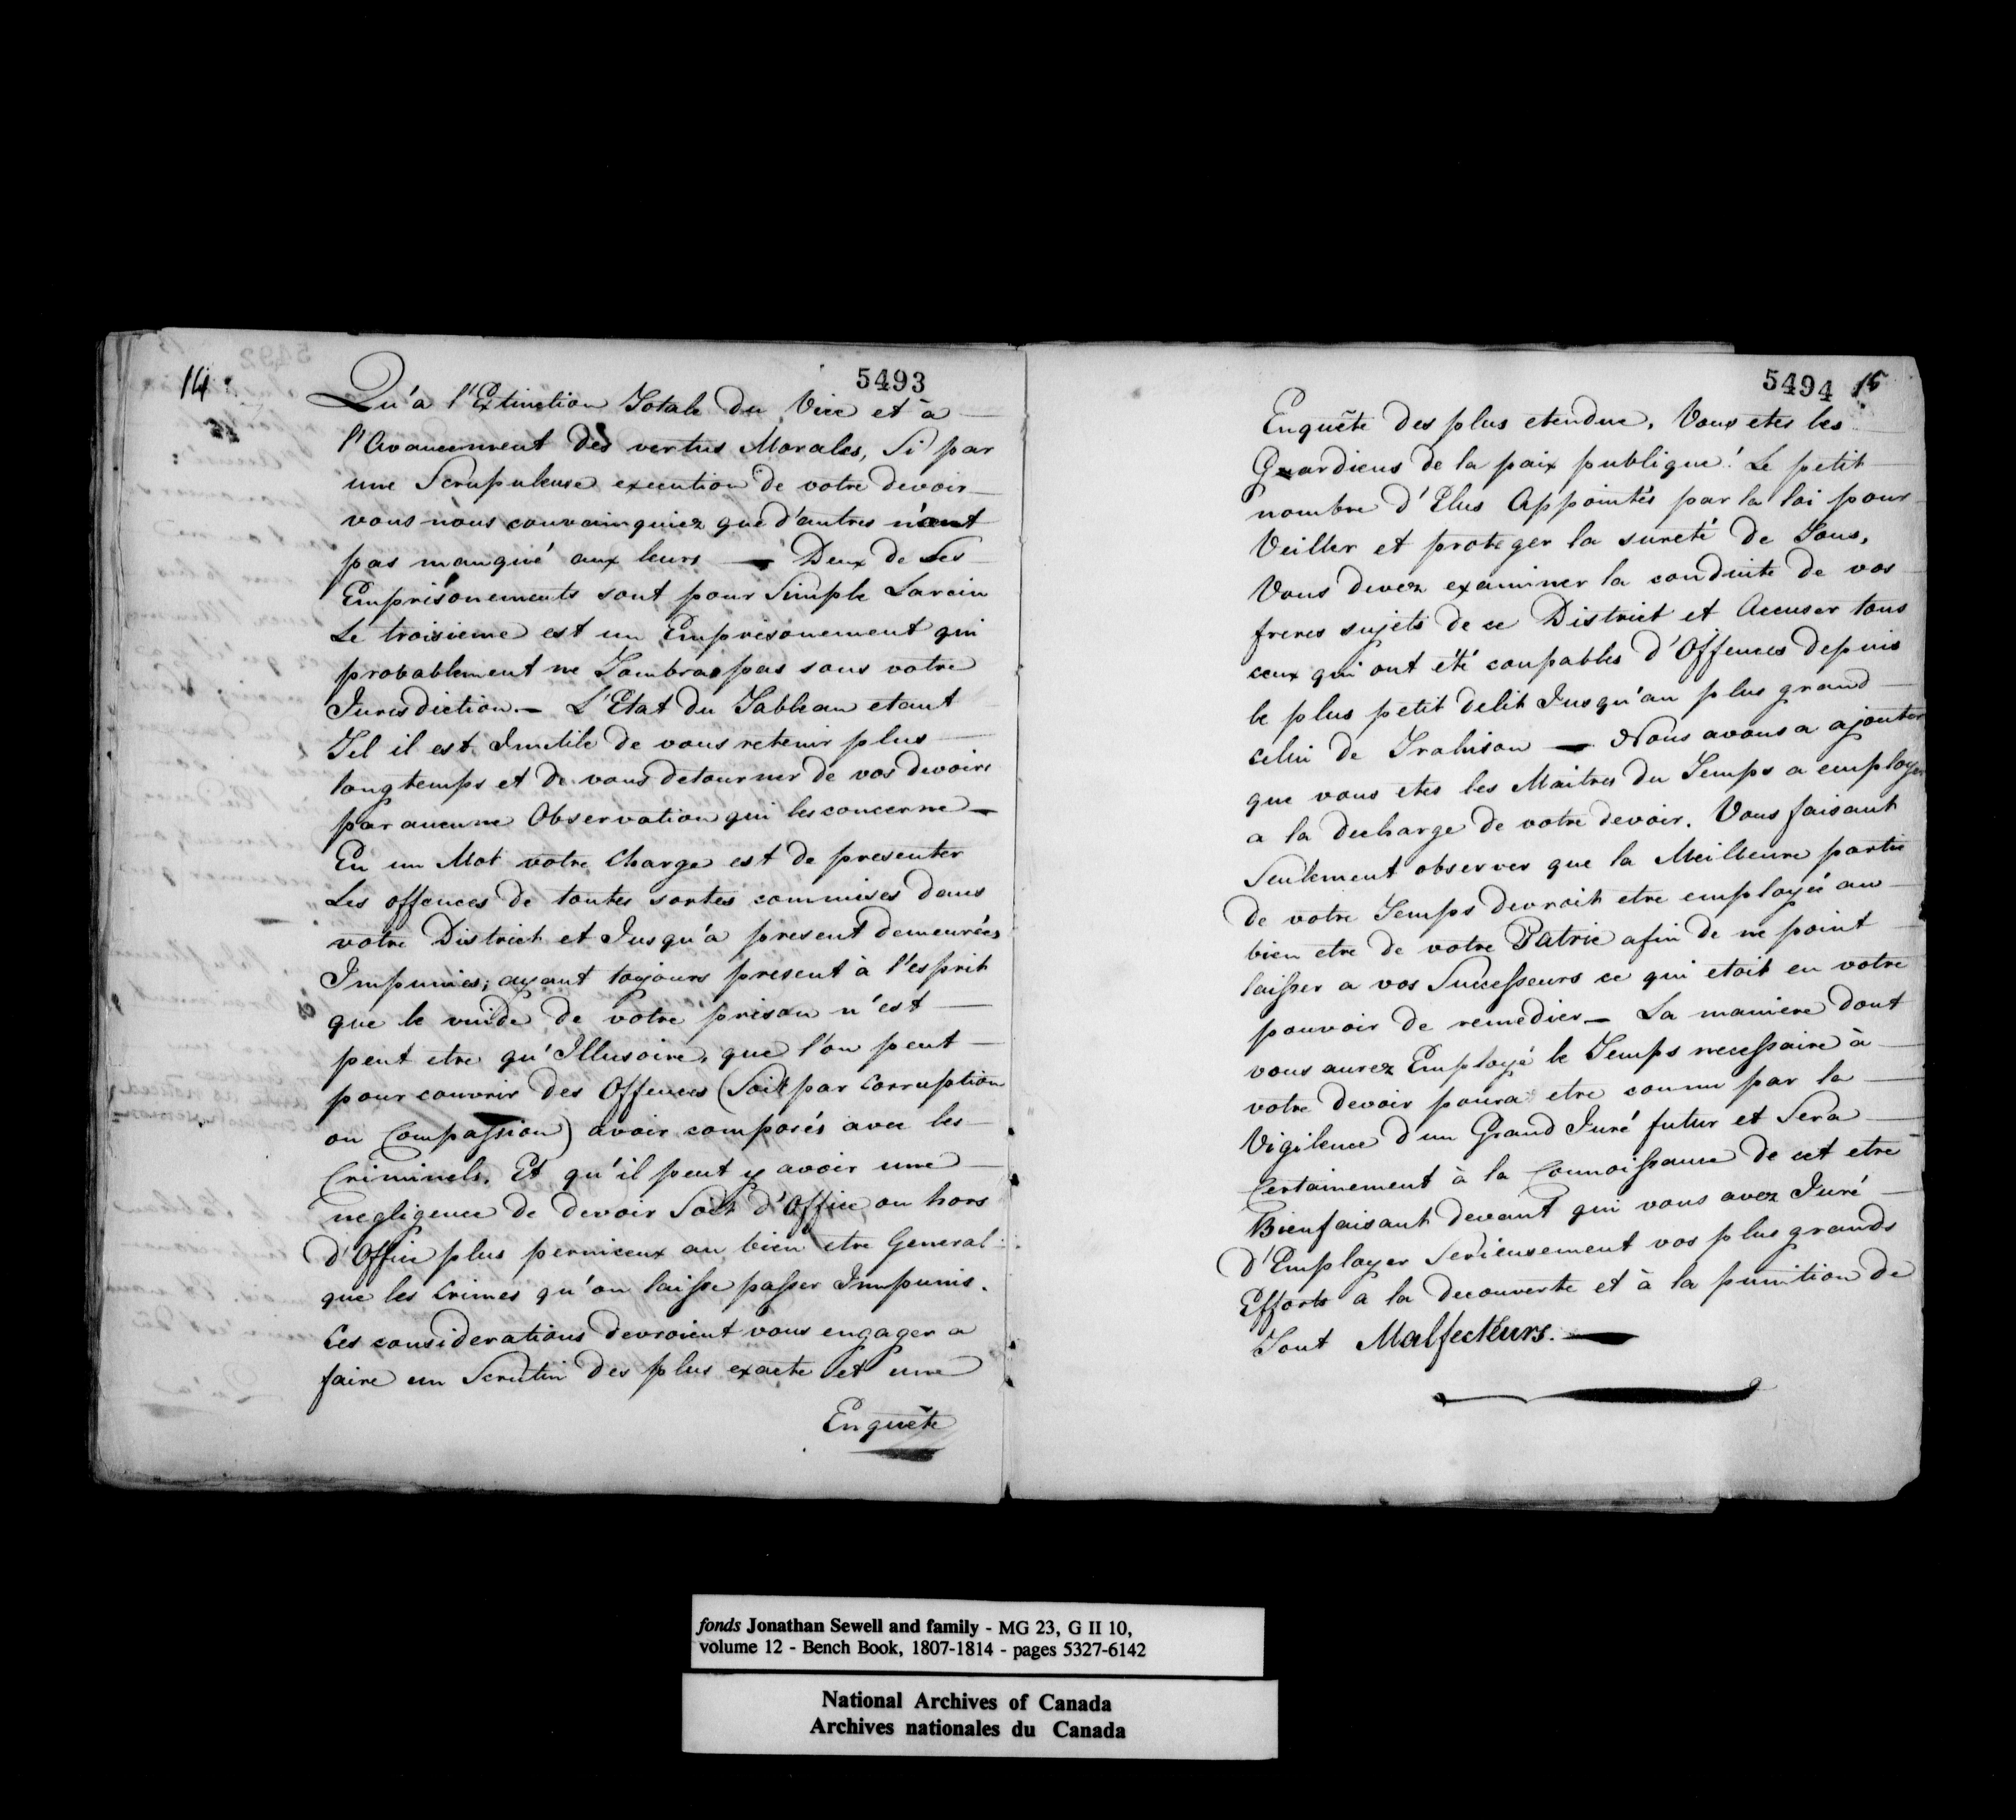 14
5493
Qu'a l'Extinction Totale du Vice et à
l'Avancement des vertus Morales, Si par
une Scrupuleuse execution de votre devoir
vous nous convainquiez que d'autres n'ont
pas manqué aux leurs — Deux de Ses
Emprisonements sont pour Simple Larcin
Le troisieme est un Emprisonement qui
probablement ne Tombra pas sous votre
Jurisdiction. — L'Etat du Tableau etant
Tel il est Inutile de vous retenir plus
longtemps et de vous detourner de vos devoirs
par aucune Observation qui les concerne —
En un Mot votre Charge est de presenter
Les offences de toutes sortes commises dans
votre District et Jusqu'a present demeurées
Impunies; ayant toyours present à l'esprit
que le vuide de votre prison n'est
peut etre qu'Illusoire, que l'on peut
pour couvrir des Offences (Soit par Corruption
ou Compassion) avoir composés avec les
Criminels. Et qu'il peut y avoir une
negligence de devoir Soit d'Office ou hors
d'Office plus pernicieux au bien etre General
que les Crimes qu'on laisse passer Impunis.
Ces considerations devroient vous engager a
faire un Scrutin des plus exacte et une
Enquête
5494 15
Enquête des plus etendue. Vous etes les
Guardiens de la paix publique! Le petit
nombre d'Elus Appointés par la loi pour
Veiller et proteger la sureté de Tous,
Vous devez examiner la conduite de vos
freres sujets de ce District et Accuser tous
ceux qui ont été coupables d'Offences depuis
le plus petit delit Jusqu'au plus grand
celui de Trahison — Nous avons a ajouter
que vous etes les Maitres du Temps a employer
a la decharge de votre devoir. Vous faisant
Seulement observer que la Meilleure partie
de votre Temps devroit etre employée au
bien etre de votre Patrie afin de ne point
laisser a vos Successeurs ce qui etoit en votre
pouvoir de remedier — La maniere dont
vous aurez Employé le Temps necessaire à
votre devoir poura etre connu par la
Vigilence d'un Grand Juré futur et Sera
Certainement à la Connoissance de cet etre
Bienfaisant devant qui vous avez Juré
d'Employer Serieusement vos plus grands
Efforts a la decouverte et à la punition de
Tout Malfecteurs. —
fonds Jonathan Sewell and family - MG 23, G II 10,
volume 12 - Bench Book, 1807-1814 - pages 5327-6142
National Archives of Canada
Archives nationales du Canada